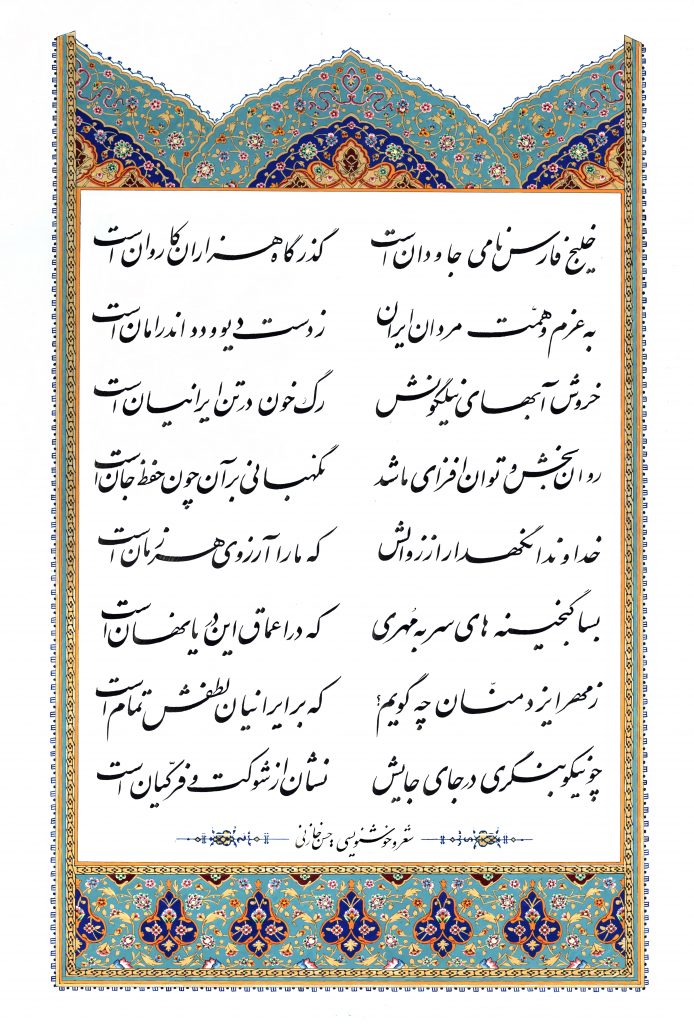 خلیج فارس نامی جاودان است گذرگاه هزاران کاروان است
به عزم و همّت مردان ایران ز دست دیو و دد اندر امان است
خروش آبهای نیلگونش رگ خون در تن ایرانیان است
روان بخش و توان افزای ما شد نگهبانی بر آن چون حفظ جان است
خداوندا نگهدار از زوالش که ما را آرزوی هر زمان است
بسا گنجینه های سر به مُهری که در اعماق این دریا نهان است
ز مهر ایزد منّان چه گویم؟ که بر ایرانیان لطفش تمام است
چو نیکو بنگری در جای جایش نشان از شوکت و فرّ کیان است
شعر و خوشنویسی حسن خازنی